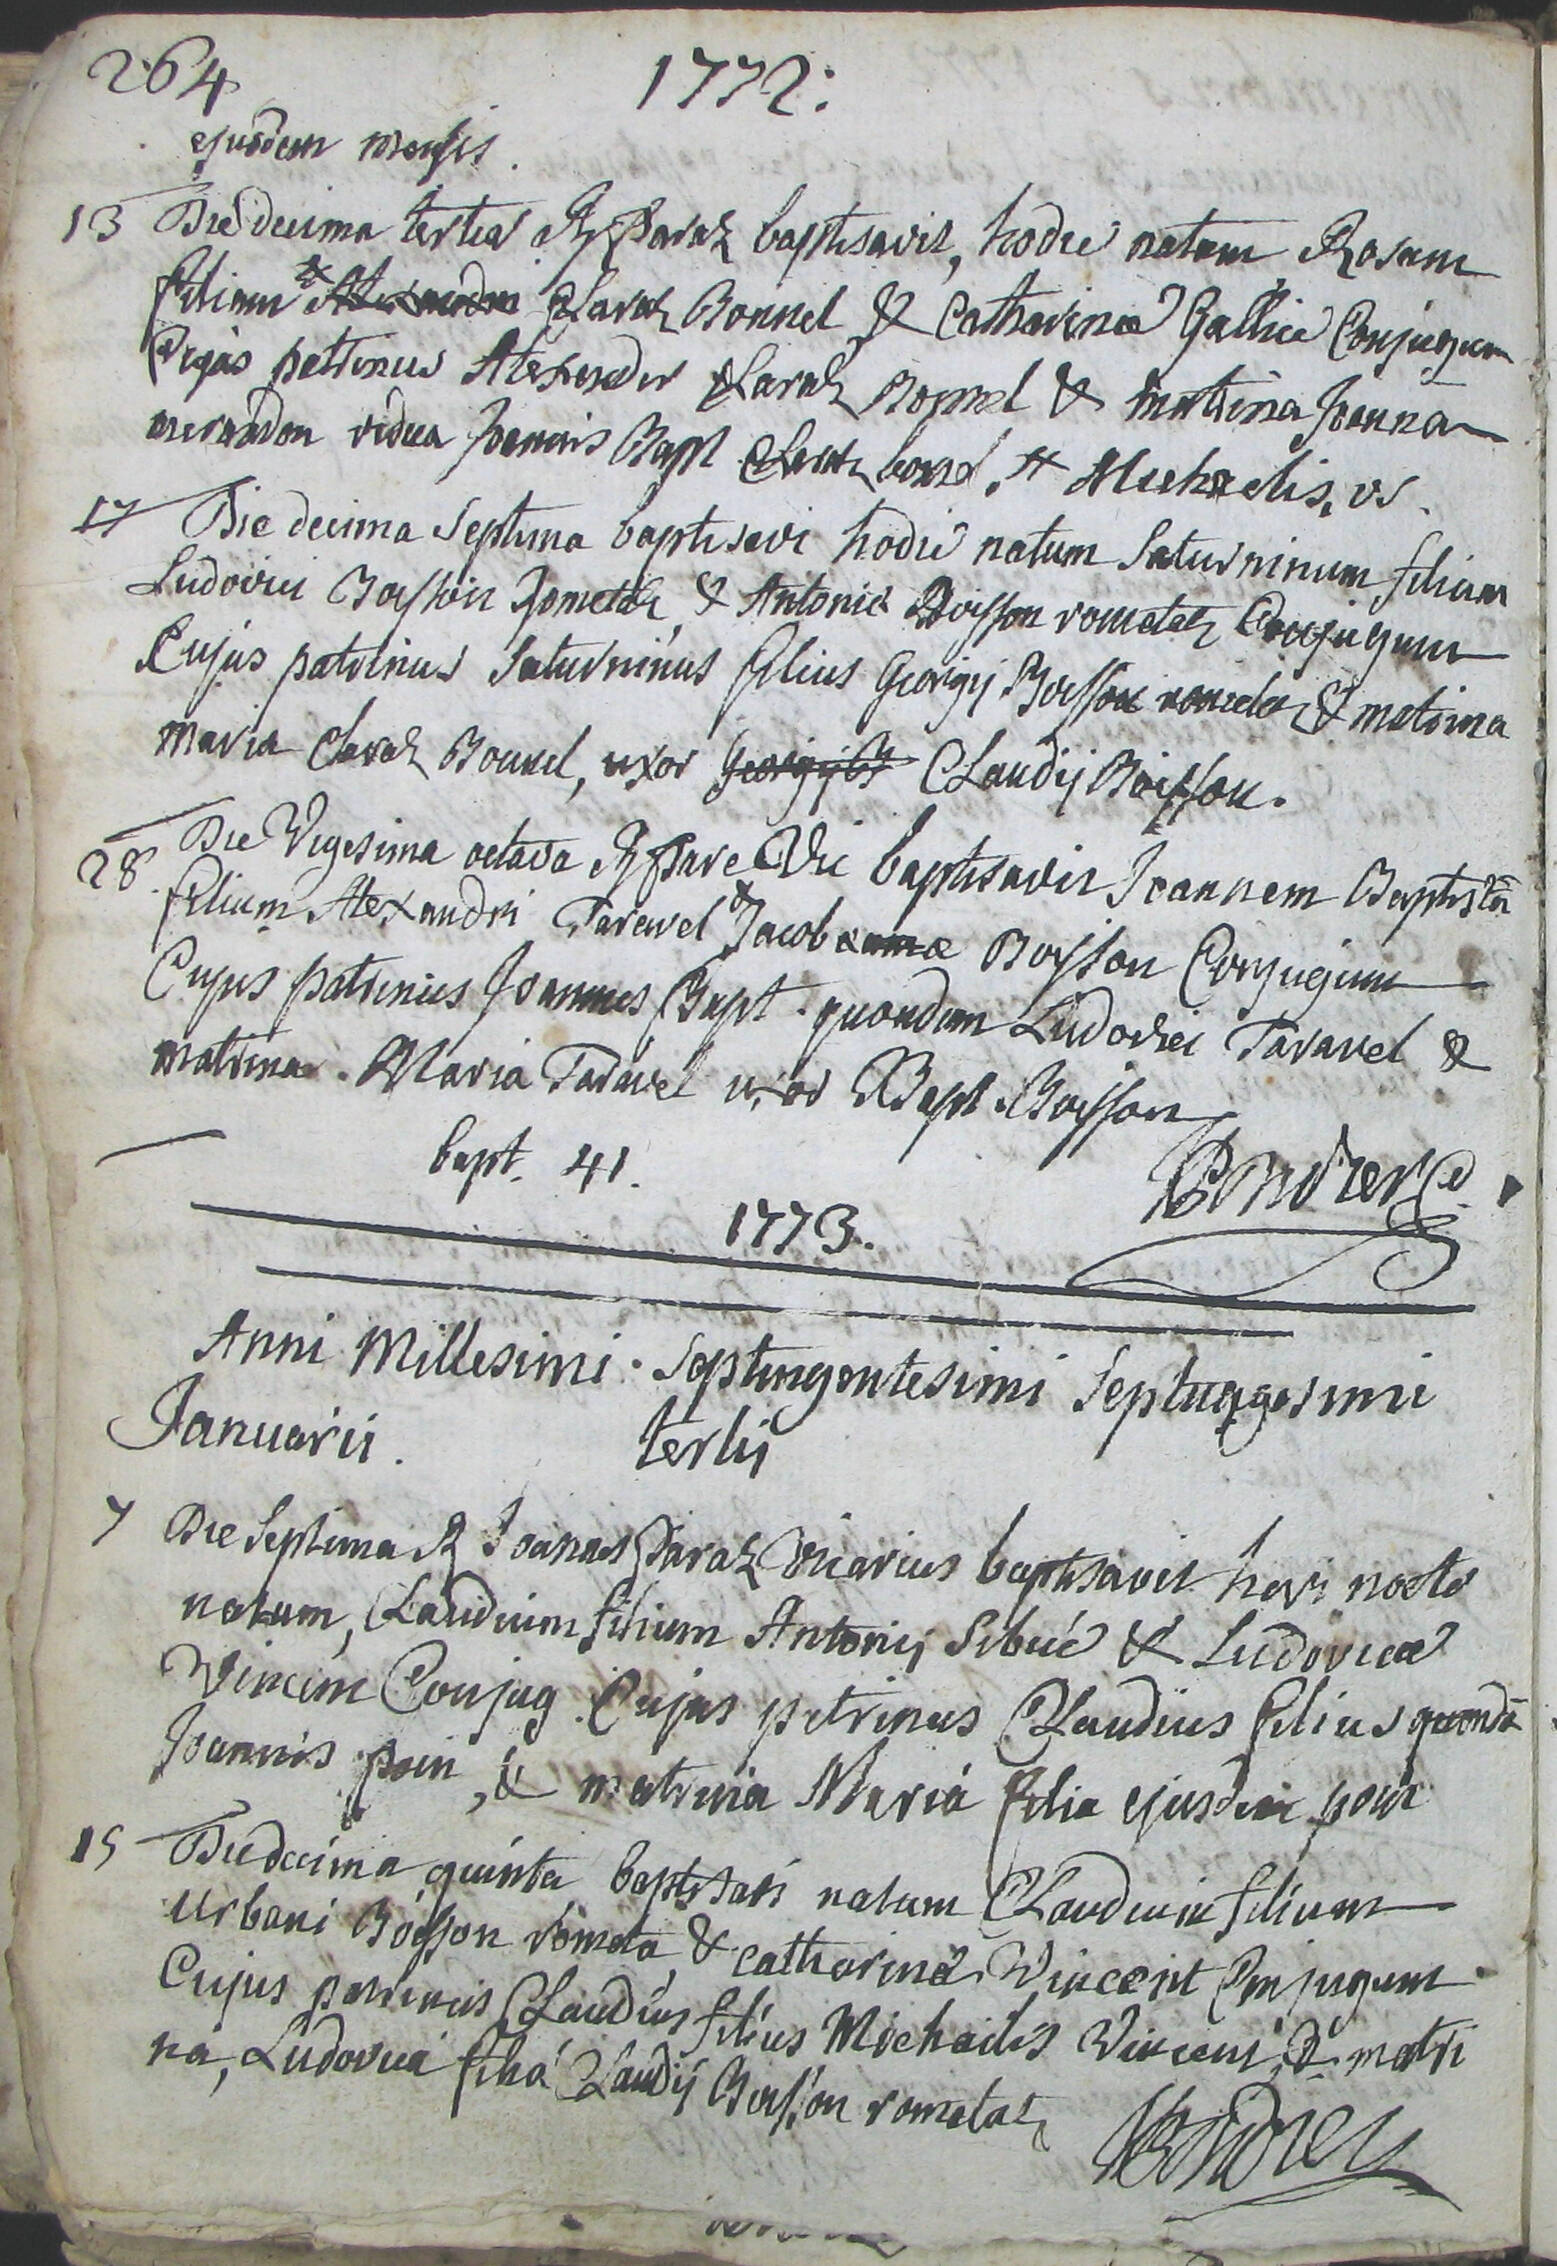 264 1772:
ejusdem mensis.
13 Die decima tertia R baptisavit, hodie natam Rosam
filiam Alexandri Claraz Bonnel & Catharinæ Gallice Conjugum
Cujus patrinus Alexander Claraz Bonnel & matrina Joanna
vidua Joannis Bapt Claraz bonnel. + Michaelis, vs.
17 Die decima Septima baptisavi hodie natum Saturninum filium
Ludovici Boisson Rometaz, & Antoniæ Boisson rometaz Conjugum
Cujus patrinus Saturninus filius Georgij Boisson rometaz & matrina
maria Claraz Bonnel, uxor Georgij B Claudij Boisson.
28 Die Vigesima octava R Vic baptisavit Joannem Baptistã
filium Alexandri Taravel & Jacobæ Boisson Conjugum
Cujus patrinus Joannes Bapt. quondam Ludovici Taravel &
matrina. Maria Taravel uxor Bapt. Boisson
bapt. 41.
1773.
Anni Millesimi. Septingentesimi Septuagesimi
Januarii. tertij
7 Die Septima R Joannes Vicarius baptisavit heri nocte
natum, Claudium filium Antonij Sibué & Ludovicæ
Vincent Conjug. Cujus patrinus Claudius filius quondã
Joannis, & matrina Maria filia ejusdem
15 Die decima quinta baptisavi natum Claudium filium
Urbani Boisson rometa & catharinæ Vincent Conjugum
Cujus patrinus Claudius filius Michaelis Vincent, & matri
na, Ludovica filia Claudij Boisson rometaz